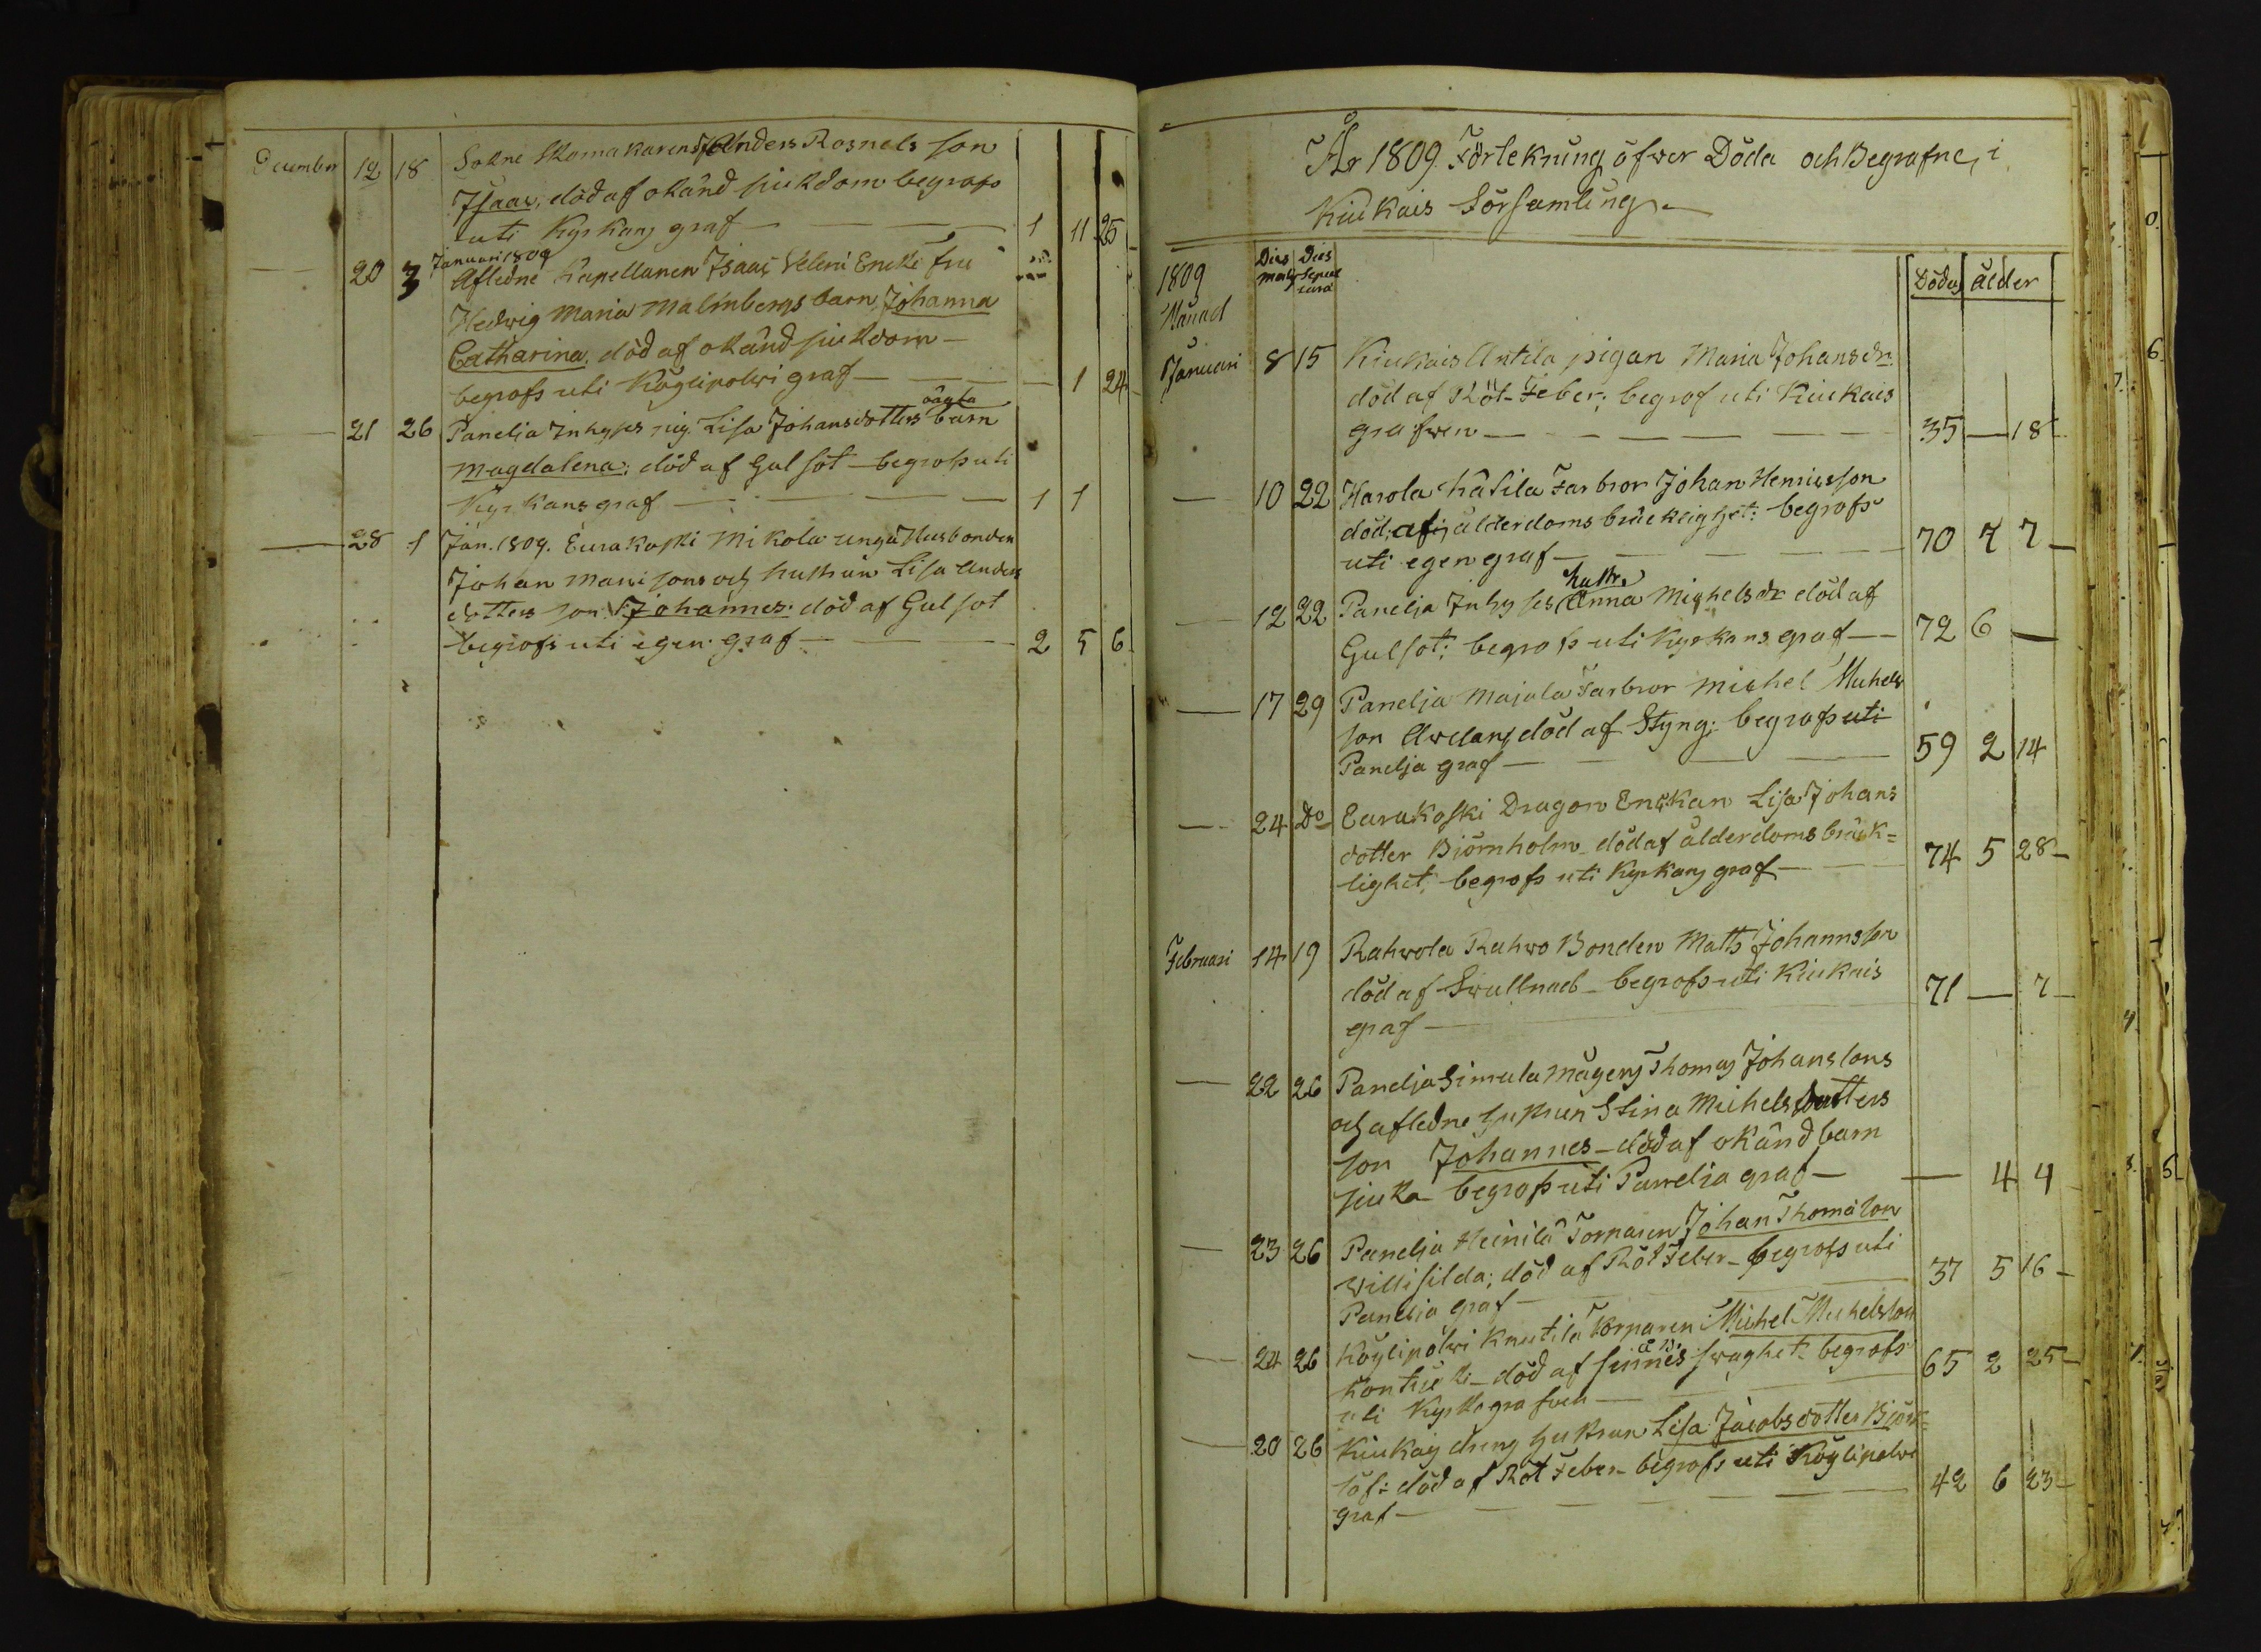 December 12 18 Sokne Skomakarens Anders Rosnels son
Isaac, död af okänd siukdom begrafs
uti Kyrkans graf — 1 11 25
Januari 1809
— 20 3 Afledne Kapellanen Isaac Veleni Encke fru
Hedwig Maria Malmbergs barn Johanna
Catharina, död af okänd siukdom —
begrofs uti Köylipolwi graf — — 1 24
oägta
— 21 26 Panelia Inhyses pig. Lisa Johansdotters barn
Magdalena; död af Gulsot – begrofs uti
Kyrkans graf — 1 1
— 28 1 Jan. 1809. Eurakoski Mikola unga Husbonden
Johan Manssons och hustrun Lisa Anders
dotters son: Johannes: död af Gulsot
begrofs uti egen graf — 2 5 6
År 1809. Förtekning öfwer Döda och Begrafne, i
Kiukais Församling. —
1809 Dies Dies
Månad mort Sepul
turæ
Dödas ålder
Januari 8 15 Kiukais Antila pigan Maria Johansdr.
död af Röt-Feber; begrof uti Kiukais
grafwen — 35 — 18
— 10 22 Harola Farbror Johan Henricsson
död af ålderdoms bräcklighet: begrofs
uti egen graf — 70 7 7 —
hustr.
— 12 22 Panelja Inhyses Anna Michelsdr död af
Gulsot; begrofs uti Kyrkans graf — 72 6 —
— 17 29 Panelja Majala Farbror Michel Michels
son död af Styng; begrofs uti
Panelja graf — 59 2 14
— 24 Do Eurakoski Dragon Enckan Lisa Johans
dotter Björnholm – död af ålderdoms bräck=
lighet; begrofs uti Kyrkans graf — 74 5 28 —
Februari 14 19 Rahvola Rahwo Bonden Matts Johansson
död af Swullnad – begrofs uti Kiukais
graf — 71 — 7 —
— 22 26 Panelja Simula Mågens Thomas Johanssons
och afledne hustrun Stina Michelsdotters
son Johannes – död af okänd barn
siuka begrofs uti Panelia graf — — 4 4
— 23 26 Panelja Heinilä Torparen Johan Thomasson
Willisilda; död af Röt Feber – begrofs uti
Panelia graf — 37 5 16 —
— 24 26 Köylipolwi Knuutila Torparen Michel Michelsson
död af sinnes swaghet – begrofs
uti Kyrkografven — 65 2 25 —
— 20 26 Kiukais dreng hustrun Lisa Jacobsdotter Björk=
löf: död af Röt Feber – begrofs uti Köylipolwi
graf — 42 6 23 —